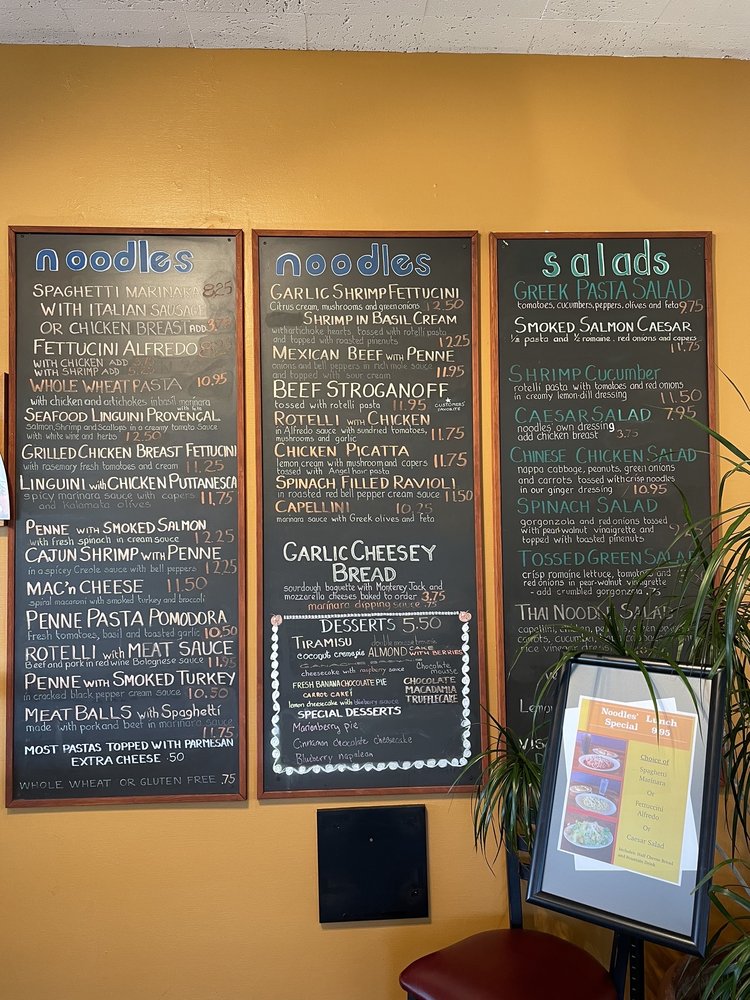 noodles
SPAGHETTI MARINARA 8.25
WITH ITALIAN SAUSAGE
OR CHICKEN BREAST ADD 3.75
FETTUCINI ALFREDO
WITH CHICKEN ADD
WITH SHRIMP ADD
WHOLE WHEAT PASTA 10.95
with chicken and artichokes in basil marinara
SEAFOOD LINGUINI PROVENCAL
Salmon, Shrimp and Scallops in a creamy tomato Sauce
with white wine and herbs 12.50
GRILLED CHICKEN BREAST FETTUCINI
with rosemary fresh tomatoes and cream 11.25
LINGUINI with CHICKEN PUTTANESCA
spicy marinara sauce with capers
and Kalamata olives 11.75
PENNE WITH SMOKED SALMON
with fresh spinach in cream sauce 12.25
CAJUN SHRIMP WITH PENNE
in a spicey Creole sauce with bell peppers 12.25
MAC'n CHEESE 11.50
spiral macaroni with smoked turkey and broccoli
PENNE PASTA POMODORA
Fresh tomatoes, basil and toasted garlic 10.50
ROTELLI with MEAT SAUCE
Beef and pork in red wine Bolognese sauce 11.95
PENNE WITH SMOKED TURKEY
in cracked black pepper cream sauce 10.50
MEAT BALLS with SPAGHETTI
made with pork and beef in marinara sauce
11.75
MOST PASTAS TOPPED WITH PARMESAN
EXTRA CHEESE .50
WHOLE WHEAT OR GLUTEN FREE .75
noodles
GARLIC SHRIMP FETTUCINI
Citrus cream, mushrooms and green onions 12.50
SHRIMP IN BASIL CREAM
with artichoke hearts, tossed with rotelli pasta
and topped with roasted pinenuts 12.25
MEXICAN BEEF WITH PENNE
onions and bell peppers in rich mole sauce
and topped with sour cream 11.95
BEEF STROGANOFF
tossed with rotelli pasta 11.95 CUSTOMERS' FAVORITE
ROTELLI WITH CHICKEN
in Alfredo sauce with sundried tomatoes,
mushrooms and garlic 11.75
CHICKEN PICATTA
lemon cream with mushroom and capers
tossed with Angel hair pasta 11.75
SPINACH FILLED RAVIOLI
in roasted red bell pepper cream sauce 11.50
CAPELLINI 10.25
marinara sauce with Greek olives and Feta
GARLIC CHEESEY
BREAD
sourdough baguette with Monterey Jack and
mozzarella cheeses baked to order 3.75
marinara dipping sauce .75
DESSERTS 5.50
TIRAMISU
coconut creme pie ALMOND CAKE WITH BERRIES
cheesecake with raspberry sauce Chocolate mousse
FRESH BANANA CHOCOLATE PIE CHOCOLATE
CARROT CAKE! MACADAMIA
lemon cheesecake with blueberry sauce TRUFFLE CAKE
SPECIAL DESSERTS
Marionberry pie
Cinnamon chocolate cheesecake
Blueberry napolean
salads
GREEK PASTA SALAD
tomatoes, cucumbers, peppers, olives and feta 9.75
SMOKED SALMON CAESAR
½ pasta and ½ romaine, red onions and capers
11.75
SHRIMP CUCUMBER
rotelli pasta with tomatoes and red onions
in creamy lemon-dill dressing 11.50
CAESAR SALAD 7.95
noodles own dressing
add chicken breast 3.75
CHINESE CHICKEN SALAD
nappa cabbage, peanuts, green onions
and carrots tossed with crisp noodles
in our ginger dressing 10.95
SPINACH SALAD
gorgonzola and red onions tossed
with pear-walnut vinaigrette and
topped with toasted pinenuts
TOSSED GREEN SALAD
crisp romaine lettuce, tomatoes and
red onions in pear-walnut vinaigrette
- add crumbled gorgonzola .75
THAI NOODLE SALAD
capellini, chicken,
carrots, cucumber,
rice vinegar
Noodles' Lunch
Special 9.95
Choice of
Spaghetti
Marinara
Or
Fettuccini
Alfredo
Or
Caesar Salad
Includes: Half Cheese Bread
and Fountain Drink